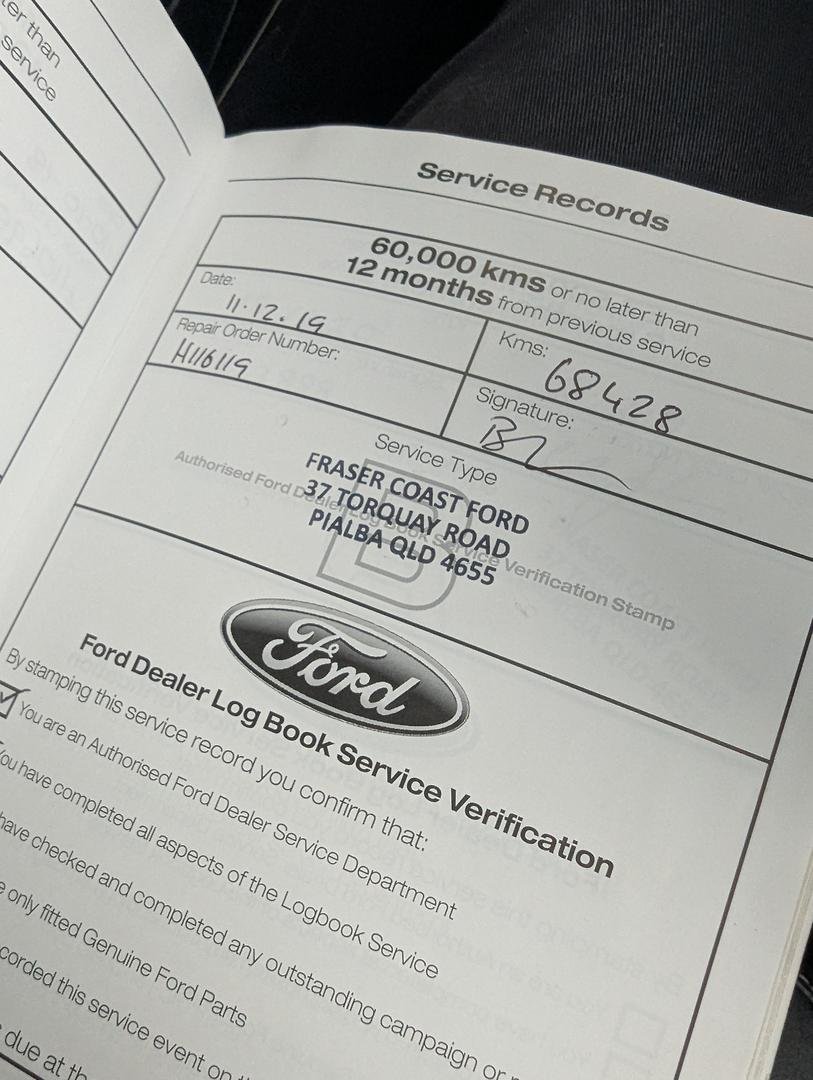 ter than
service
Service Records
60,000 kms or no later than
12 months from previous service
Date:
11.12.19
Kms:
68428
Repair Order Number:
H116119
Signature:
Service Type
B
Authorised Ford Dealer Log Book Service Verification Stamp
FRASER COAST FORD
37 TORQUAY ROAD
PIALBA QLD 4655
Ford
Ford Dealer Log Book Service Verification
By stamping this service record you confirm that:
You are an Authorised Ford Dealer Service Department
You have completed all aspects of the Logbook Service
have checked and completed any outstanding campaign or
e only fitted Genuine Ford Parts
corded this service event on
due at th